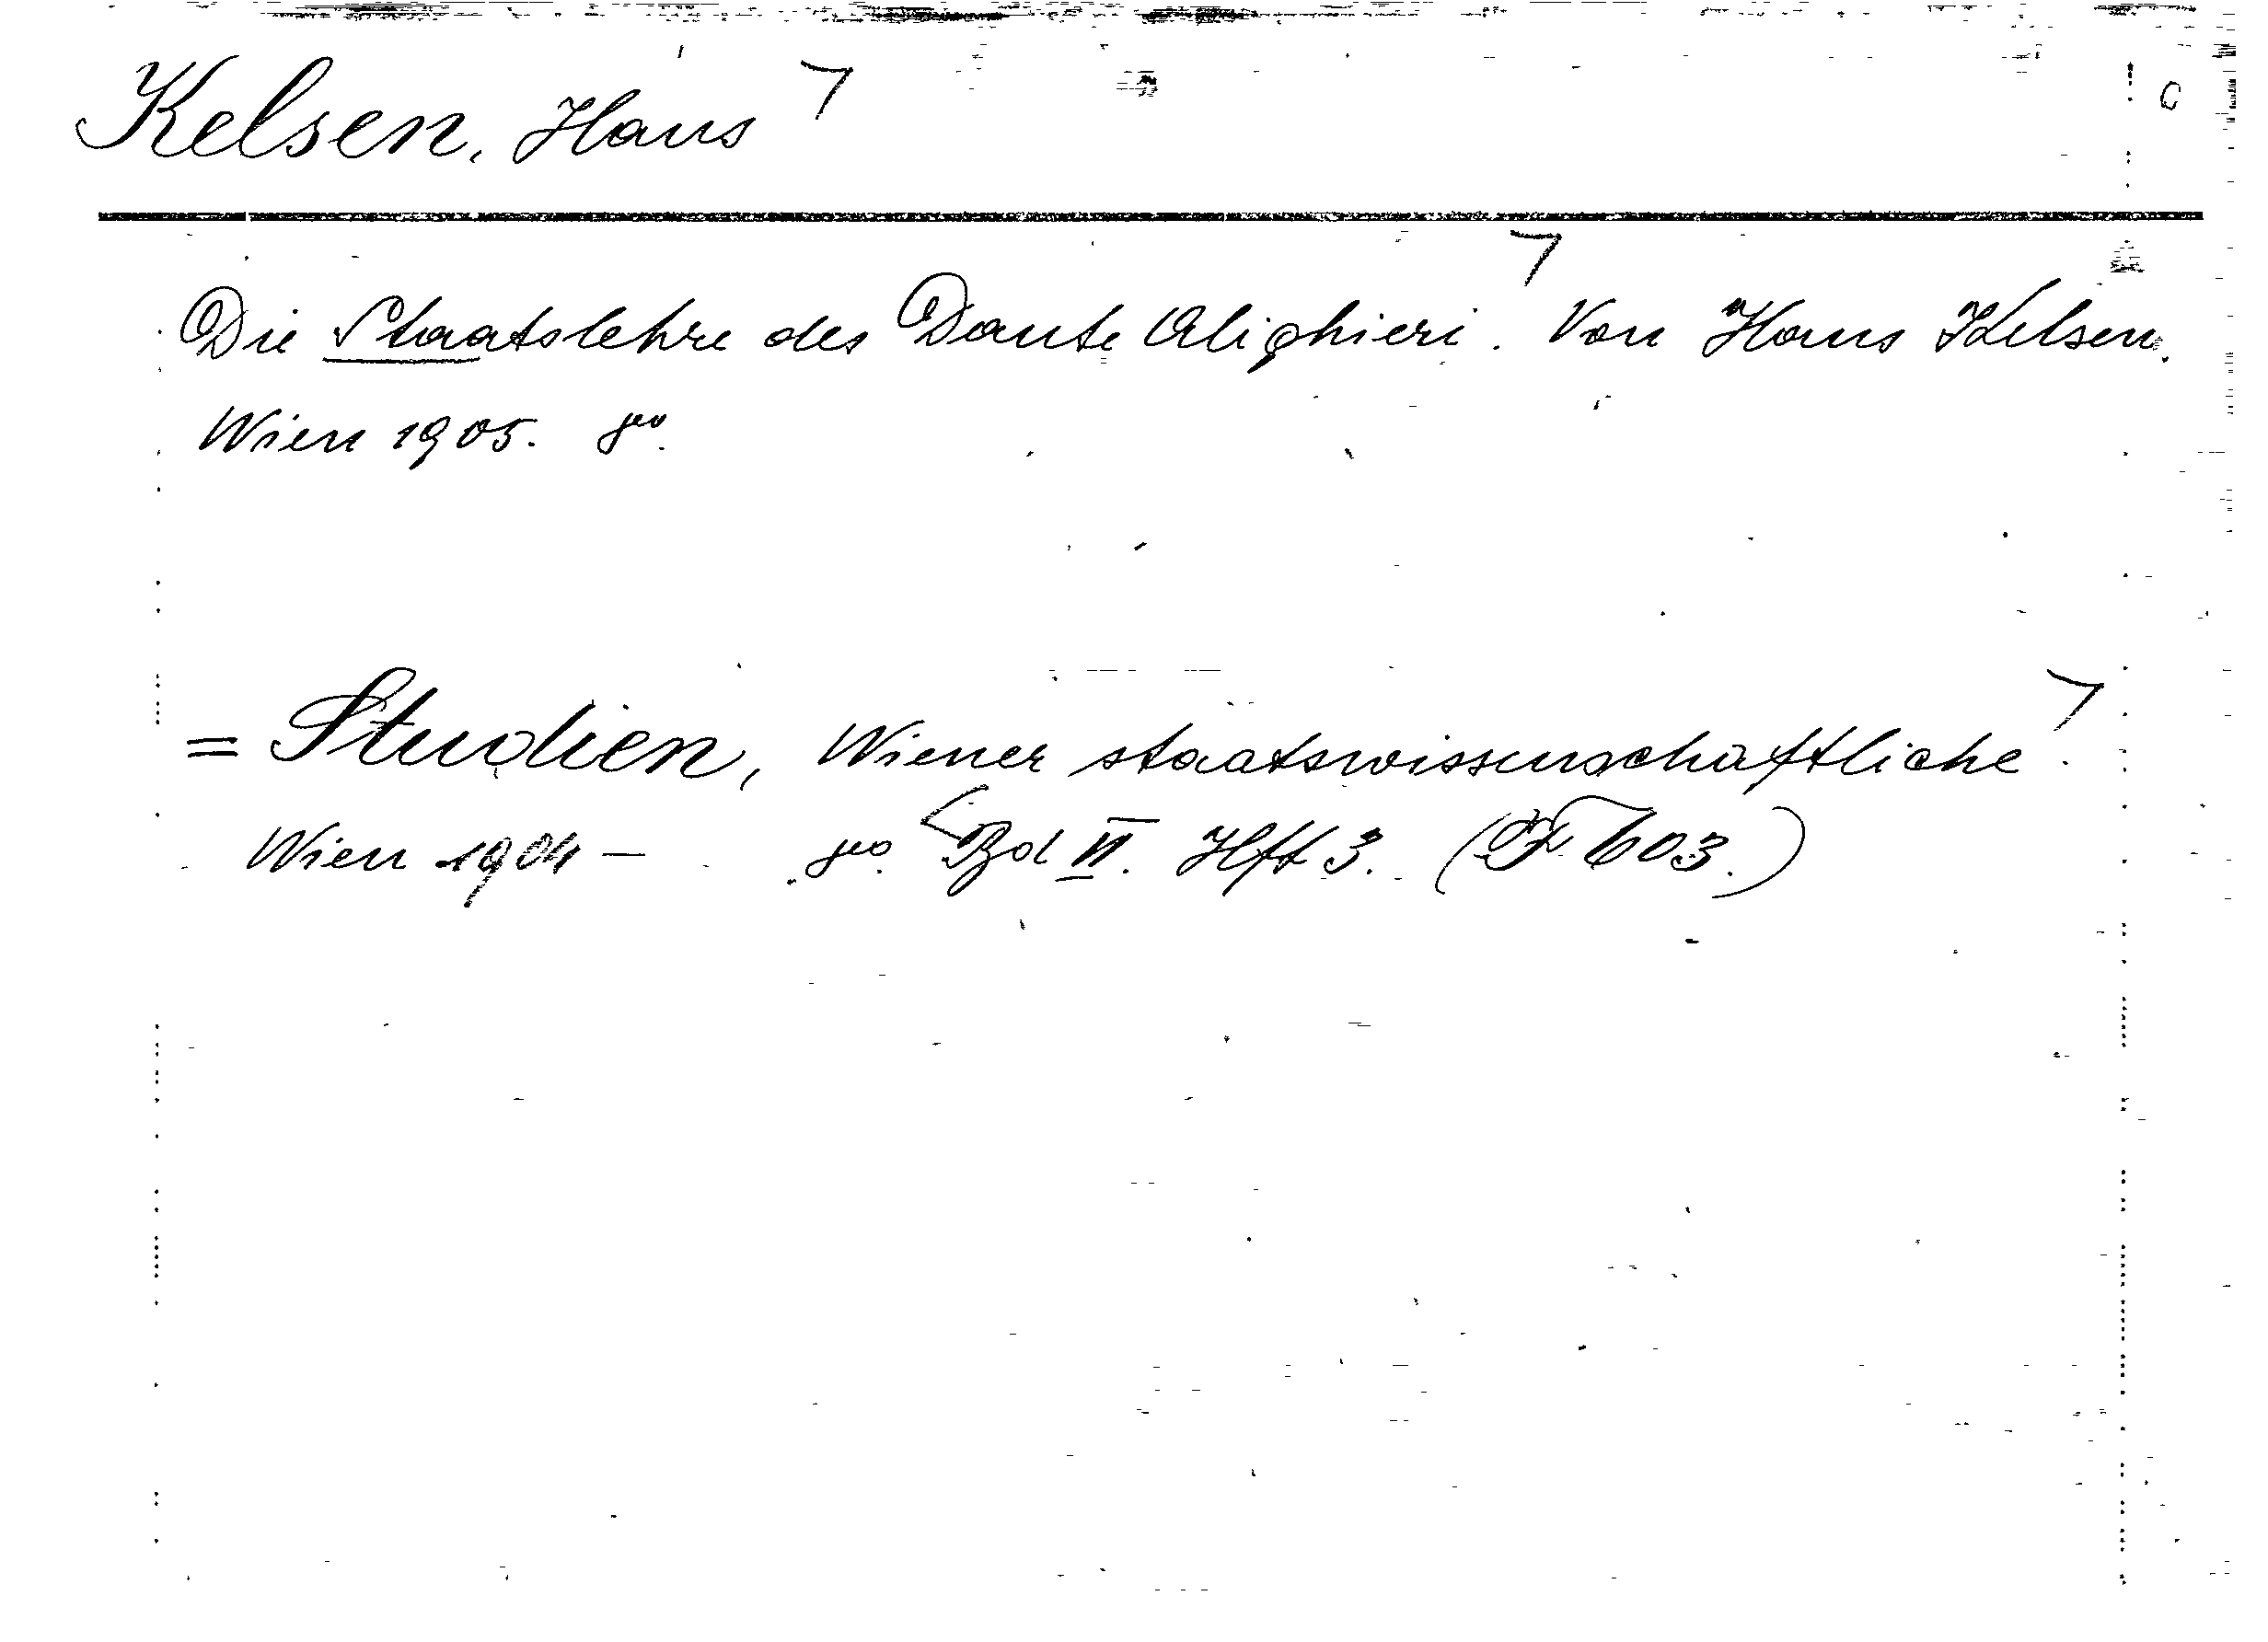 Kelsen, Hans
Die Staatslehre des Dante Alighieri. Von Hans Kelsen.
Wien 1905. 8vo.
= Studien, Wiener staatswissenschaftliche.
Wien 1904 — 8vo. Bd VI. Hft 3. (F 603.)